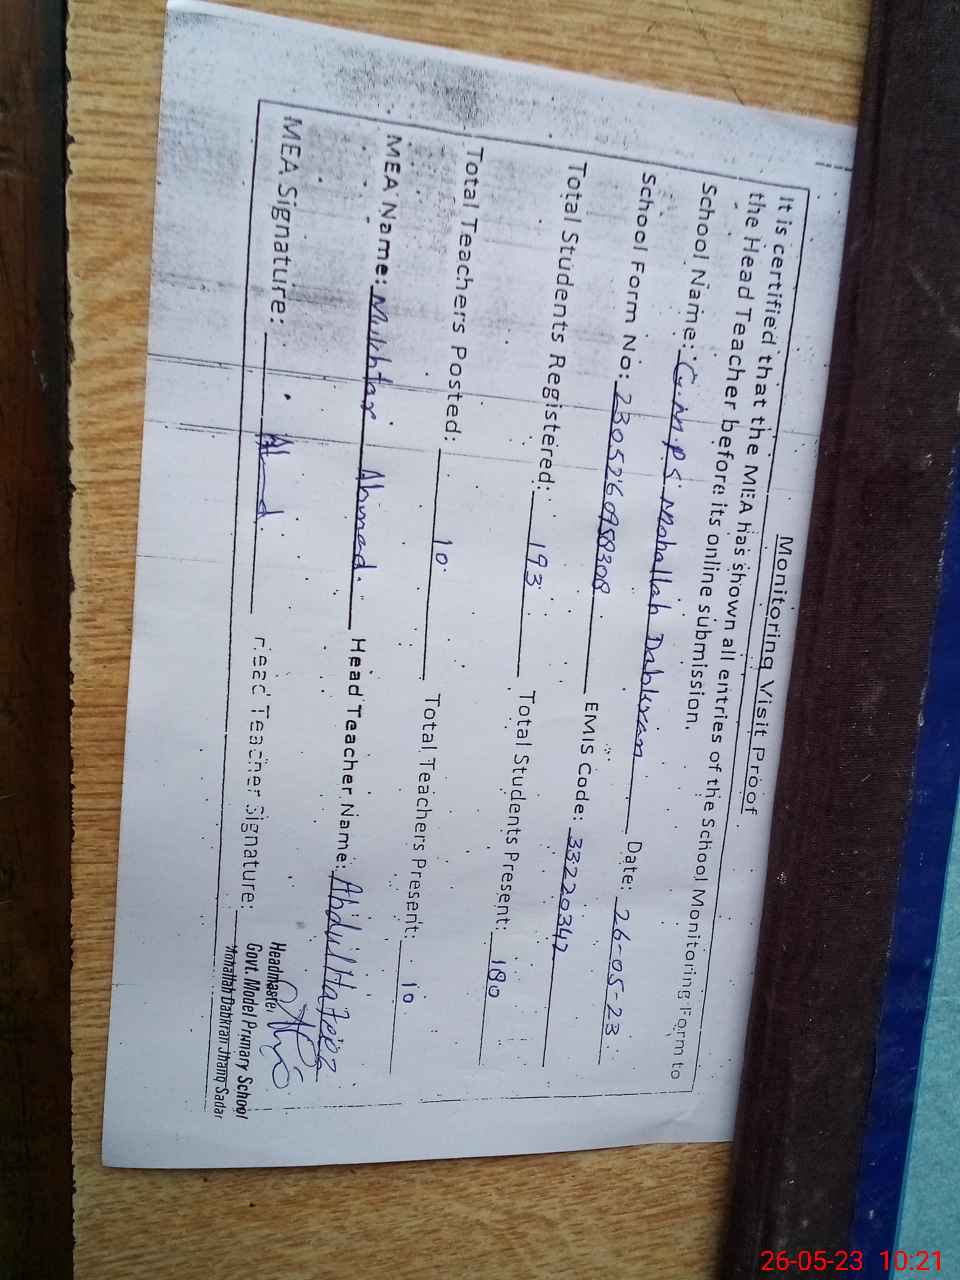 Monitoring Visit Proof
It is certified that the MEA has shown all entries of the School Monitoring Form to
the Head Teacher before its online submission.
School Name: G.M.P.S Mohallah Dabkran Date: 26-05-23
School Form No: EMIS Code: 33220342
Total Students Registered: 193 Total Students Present: 180
Total Teachers Posted: 10 Total Teachers Present: 10
MEA Name: Mukhtar Ahmad. Head Teacher Name: Abdul Hafeez
MEA Signature: Ahmad Head Teacher Signature:
Headmaster
Govt. Model Primary School
Mohallah Dabkran Jhang Sadar
26-05-23 10:21